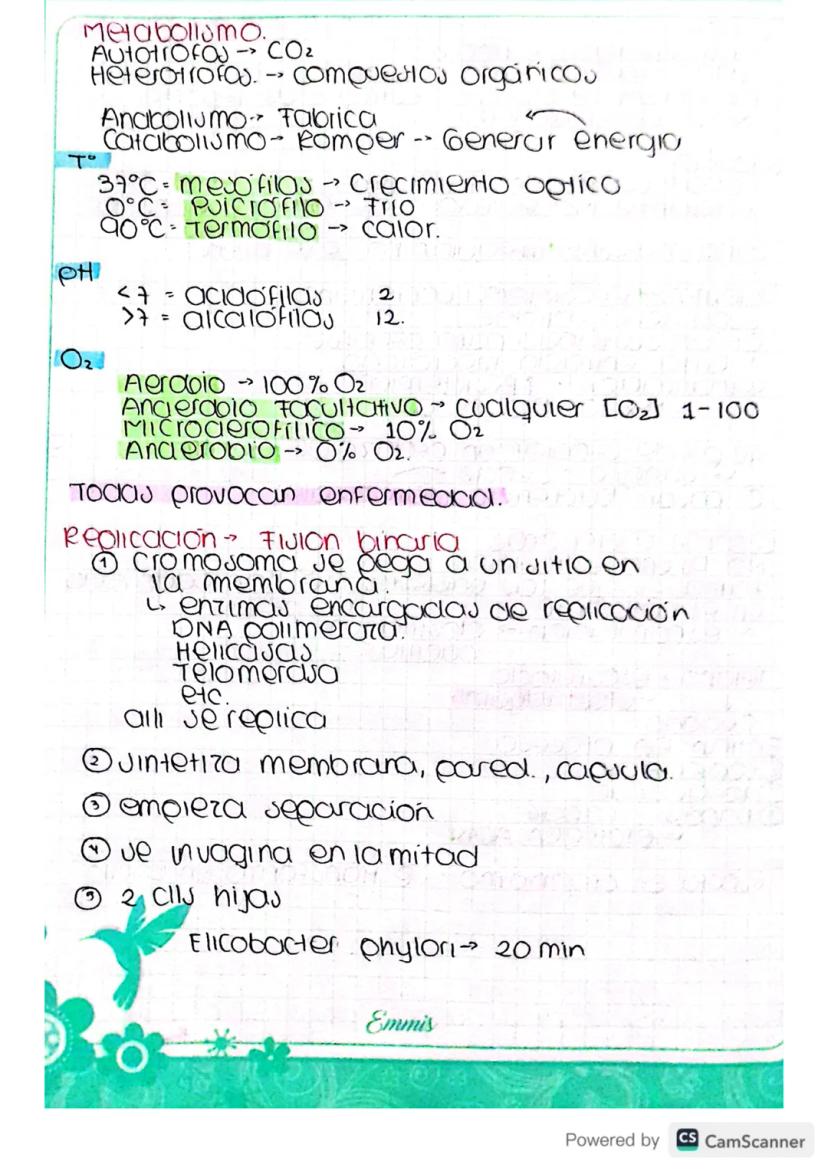 Metabolismo.
Autotrofos → CO2
Heterotrofos. → compuestos orgánicos
Anabolismo → Fabrica
Catabolismo → Romper → Generar energia
T°
37°C = mesófilos → Crecimiento optico
0°C = Psicrófilo → Frio
90°C = Termofilo → calor.
pH
<7 = acidófilas 2
>7 = alcalófilas 12.
O2
Aerobio → 100% O2
Anaerobio Facultativo → cualquier [O2] 1-100
Microaerofílico → 10% O2
Anaerobio → 0% O2.
Todas provocan enfermedad.
Replicación → Fision binaria
① Cromosoma se pega a un sitio en
la membrana.
↳ enzimas encargadas de replicación
DNA polimeraza.
Helicasas
Telomerasa
etc.
alli se replica
② sintetiza membrana, pared., capsula.
③ empieza separación
④ se invagina en la mitad
⑤ 2 clls hijas
Elicobacter phylori → 20 min
Emmis
Powered by CS CamScanner